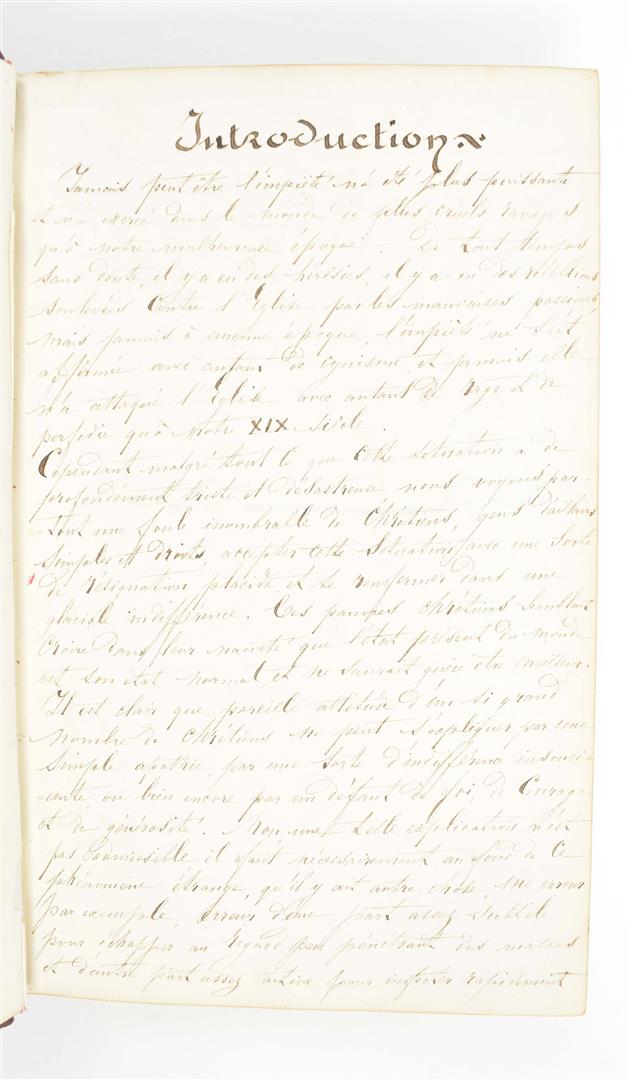 Introduction
Jamais peut être l'impiété n'a été plus puissante
et n'a exercé dans le monde de plus cruels ravages
qu'à notre malheureuse époque. De tout temps
sans doute, il y a eu des hérésies, il y a eu des rébellions
soulevées contre l'Eglise par les mauvaises passions
mais jamais à aucune époque, l'impiété ne s'est
affirmée avec autant de cynisme et jamais elle
n'a attaqué l'Eglise avec autant de rage et de
perfidie qu'à notre XIX siècle.
Cependant malgré tout ce que cette situation a de
profondément triste et désastreux nous voyons par-
tout une foule inombrable de Chrétiens, gens d'ailleurs
simples et droits, accepter cette situation avec une sorte
de résignation placide, et se renfermer dans une
glaciale indifférence. Ces pauvres Chrétiens semblent
croire dans leur naïveté que l'état présent du monde
est son état normal, et ne saurait guère être meilleur.
Il est clair que pareille attitude d'un si grand
nombre de Chrétiens ne peut s'expliquer par une
simple apathie, par une sorte d'indifférence insouci-
-ante, ou bien encore par un défaut de foi, de courage
et de générosité. Non une telle explication n'est
pas admissible il faut nécessairement au fond de ce
phénomène étrange qu'il y ait autre chose, une erreur
par exemple, erreur d'une part assez subtile
pour échapper au regard peu pénétrant des masses
et d'autre part assez active pour infecter rapidement